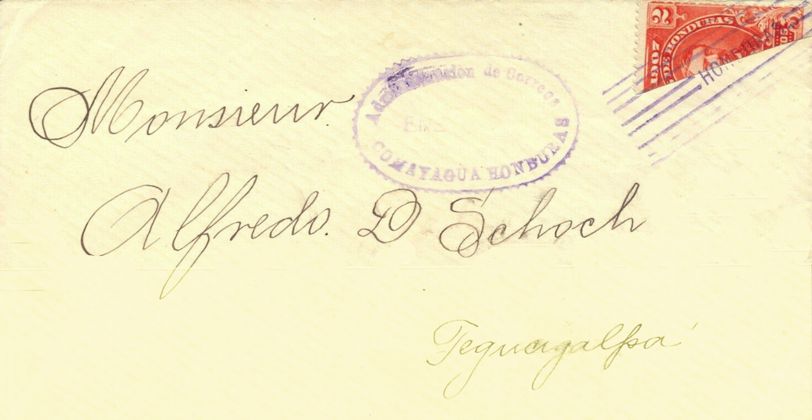 2
1907
DE HONDURAS
HONDURAS
de Correos
COMAYAGUA HONDURAS
Monsieur
Alfredo. D Schoch
Tegucigalpa